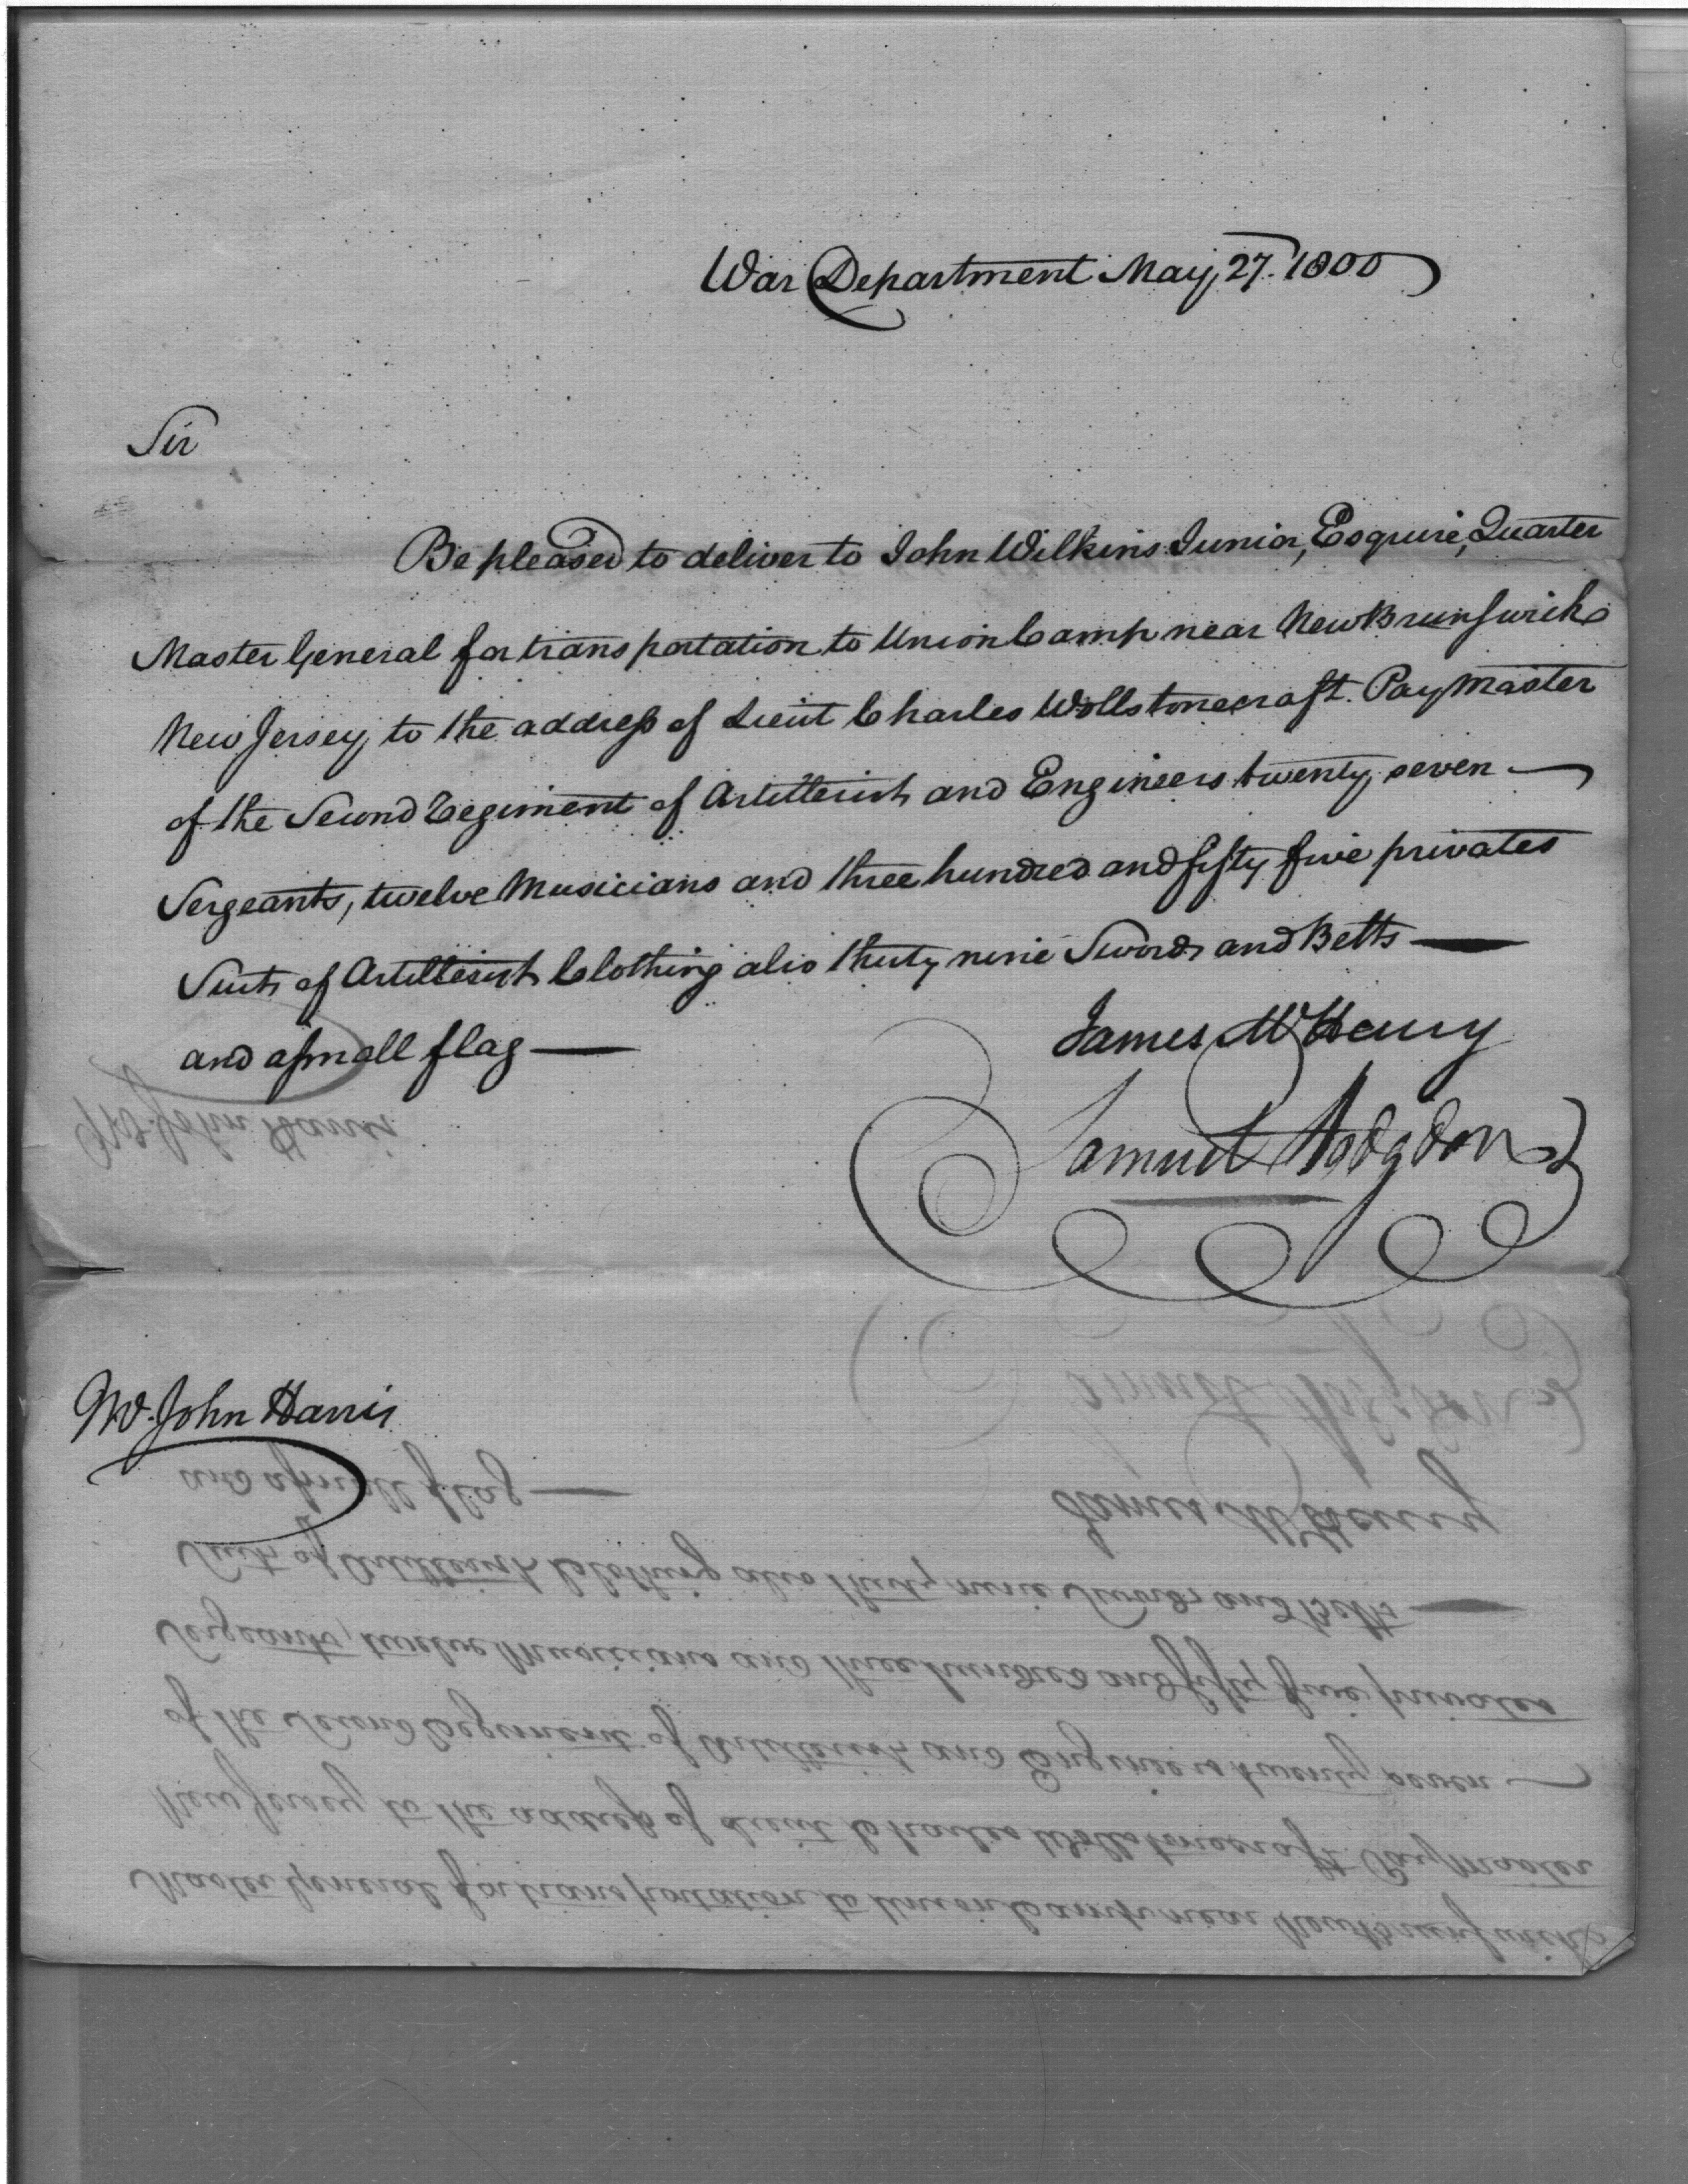 War Department May, 27. 1800
Sir
Be pleased to deliver to John Wilkins Junior, Esquire, Quarter
Master General for transportation to Union Camp near New Brunswick
New Jersey, to the address of Lieut Charles Wollstonecraft. Pay Master
of the Second Regiment of Artillerists and Engineers twenty seven —
Sergeants, twelve Musicians and three hundred and fifty five privates
Suits of Artillerist Clothing also thirty nine Swords and Belts —
and a small flag —
James McHenry
Samuel Hodgdon
Mr. John Harris